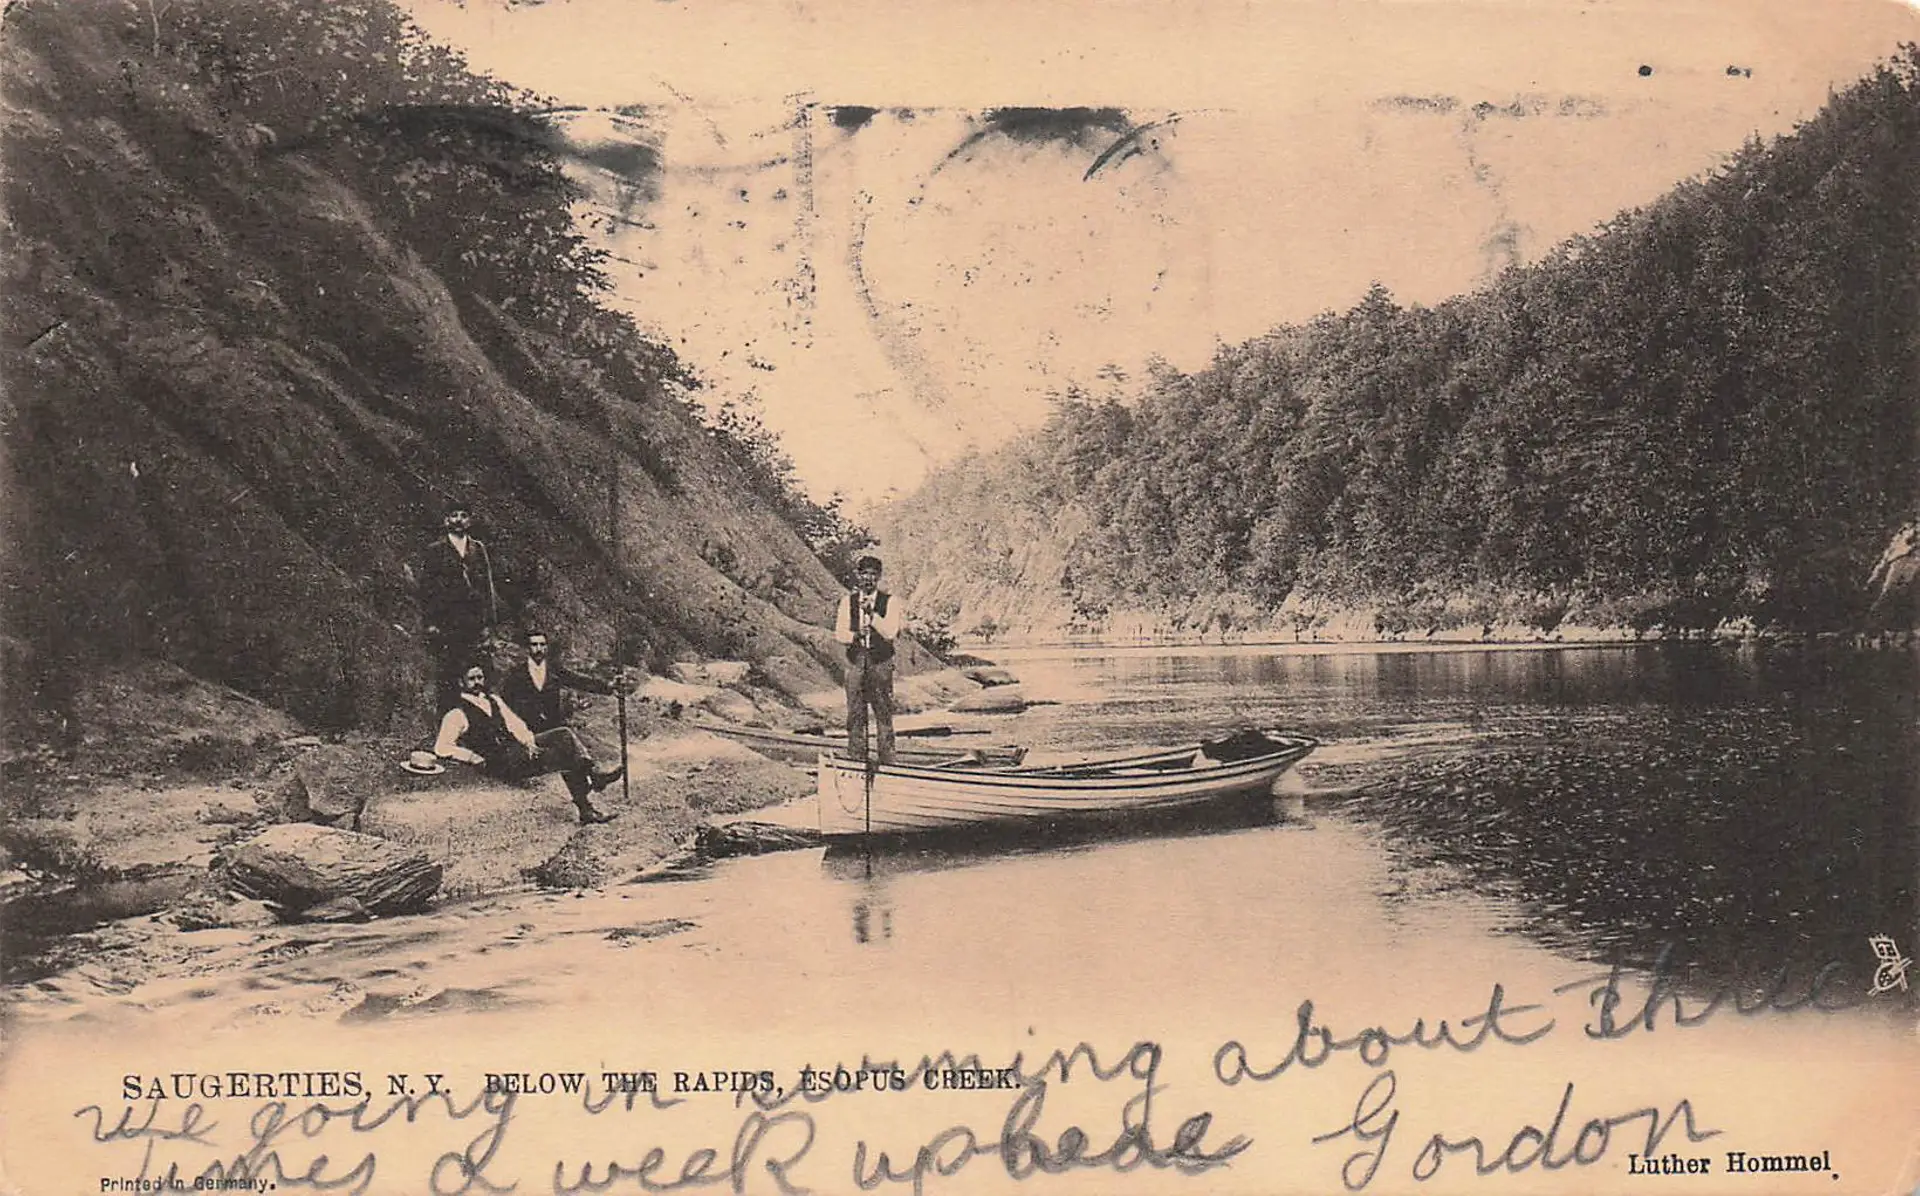 SAUGERTIES, N. Y. BELOW THE RAPIDS, ESOPUS CREEK.
We going in swrming about three
times a week up Gordon
Luther Hommel.
Printed in Germany.